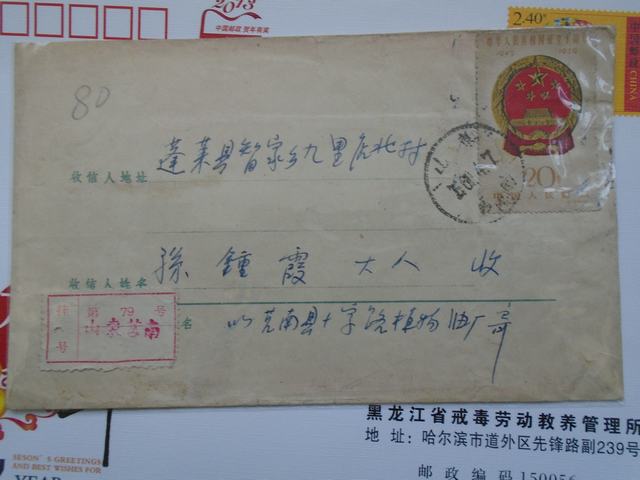 2013
中国邮政 贺年有奖
2.40元
中国邮政
CHINA
80
中华人民共和国成立十周年
1949 1959
20
中国人民邮政
收信人地址 蓬莱县
收信人姓名 孫 鍾 霞 大人 收
挂 号
第 79 号
山东莒南
名 山 莒南县十字路植物油厂寄
黑龙江省戒毒劳动教养管理所
地 址：哈尔滨市道外区先锋路副239号
邮 政 编 码 150056
SESON'S GREETINGS
AND BEST WISHES FOR
YEAR